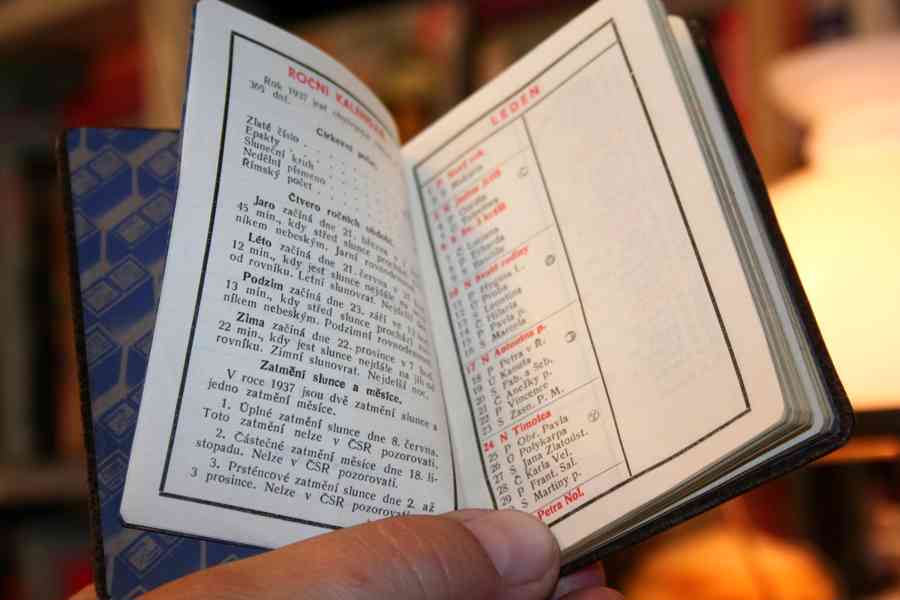 ROČNÍ KALENDÁŘ
Rok 1937 jest obyčejný
365 dní.
Církevní počet
Zlaté číslo . . .
Epakty . . .
Sluneční kruh . .
Nedělní písmeno . .
Římský počet . .
Čtvero ročních období.
Jaro začíná dne 21. března v
45 min., kdy střed slunce prochází
níkem nebeským. Jarní rovnodennost.
Léto začíná dne 21. června v 21
12 min., kdy jest slunce nejdále na
od rovníku. Letní slunovrat. Nejdelší
Podzim začíná dne 23. září ve 12
13 min., kdy střed slunce prochází
níkem nebeským. Podzimní rovnodennost.
Zima začíná dne 22. prosince v 7 hod.
22 min., kdy jest slunce nejdále na jih od
rovníku. Zimní slunovrat. Nejdelší noc.
Zatmění slunce a měsíce.
V roce 1937 jsou dvě zatmění slunce a
jedno zatmění měsíce.
1. Úplné zatmění slunce dne 8. června.
Toto zatmění nelze v ČSR pozorovati.
2. Částečné zatmění měsíce dne 18. li-
stopadu. Nelze v ČSR pozorovati.
3. Prsténcové zatmění slunce dne 2. až
3 prosince. Nelze v ČSR pozorovati.
LEDEN
1 P Nový rok
2 S Makaria
6 S Sv. 3 králů
7 Č Luciana
10 N Svaté rodiny
11 P Hygina
13 S Leontina
14 Č Hilaria
15 P Pavla p.
16 S Marcela
17 N Antonína p.
18 P Petra v Ř.
19 Ú Kanuta
20 S Fab. a Seb.
21 Č Anežky p.
22 P Vincence
23 S Zasn. P. M.
24 N Timotea
25 P Obr. Pavla
26 Ú Polykarpa
27 S Jana Zlatoúst.
28 Č Karla Vel.
29 P Frant. Sal.
S Martiny p.
Petra Nol.